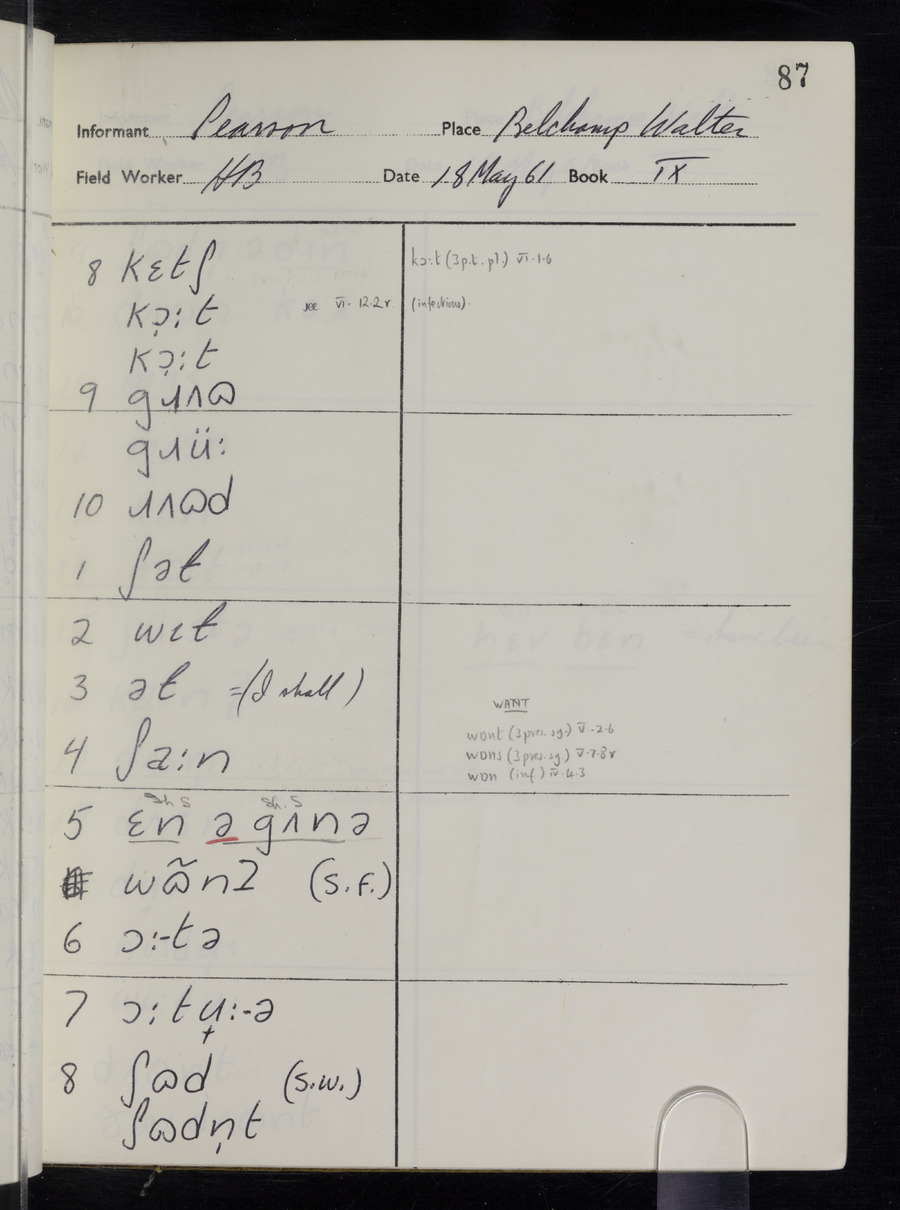 87
Informant Pearson Place Belchamp Walter
Field Worker HB Date 18 May 61 Book IX
8 kɛtʃ
kɔ̣:t see VI. 12.2r (infectious).
kɔ:t (3 p.t. pl.) VI.1.6
kɔ̣:t
9 gɹʌɷ
gɹü:
10 ɹʌɷd
1 ʃət
2 wɪt
3 ət =(I shall)
4 ʃa:n
WANT
wɒnt (3 pres. sg.) V.2.6
wɒns (3 pres. sg) V.7.8r
wɒn (inf) IV.4.3
5 ɛn ə gʌnə
wɷ̃nʔ (S.F.)
6 ɔ:-tə
7 ɔ:tʉ̟:-ə
8 ʃɷd (S.W.)
ʃɷdṇt